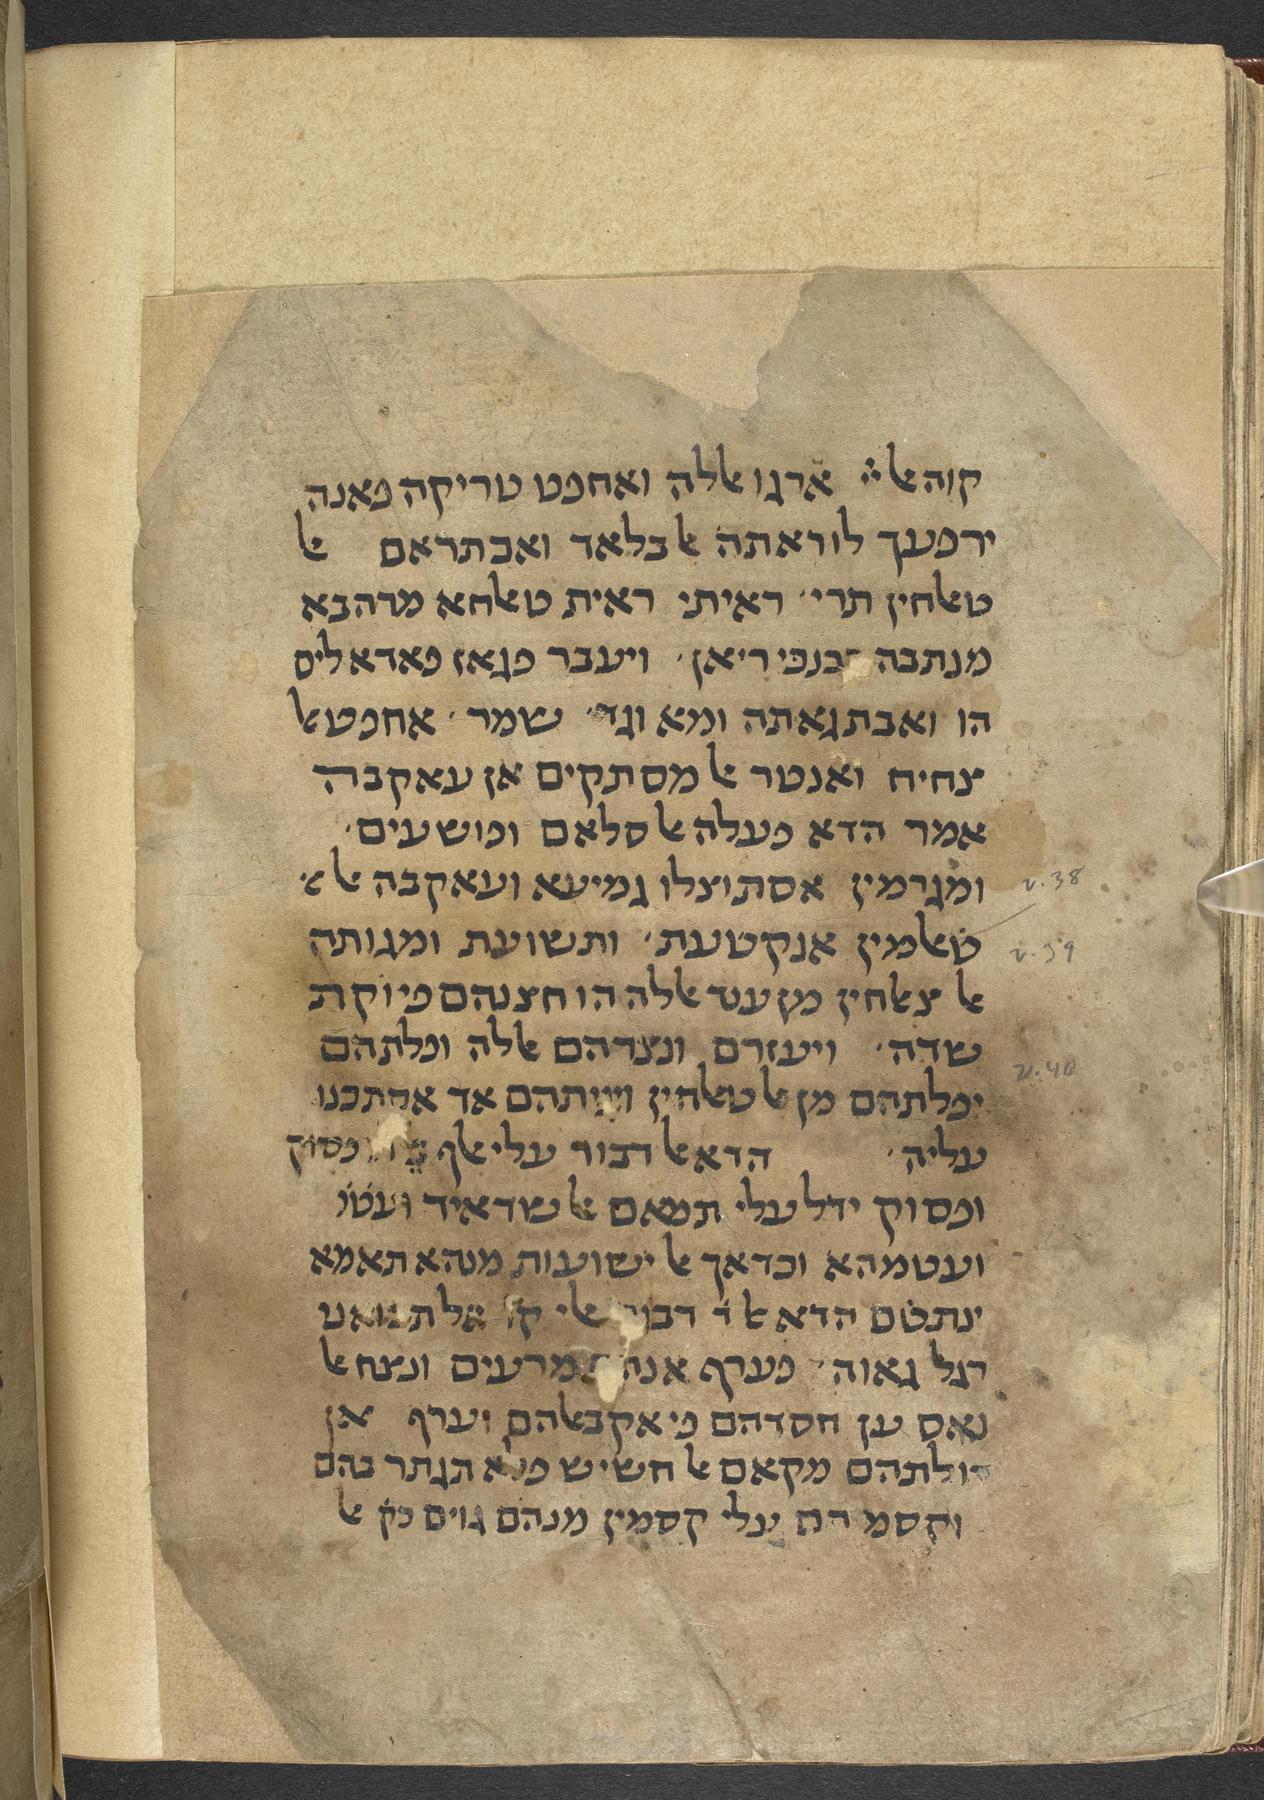 קוה אל ארגו אללה ואחפט טריקה פאנה
ירפעך לוראתה אל בלאד ואבתראם אל
טאלחין תרי׳ ראיתי ראית טאלחא מרהבא
מנתבה ריאן׳ ויעבר פגאז פאדא ליס
הו ואבתגאתה ומא וגד׳ שמר׳ אחפט אל
צחיח ואנטר אל מסתקים אן עאקבה
אמר הדא פעלה אל סלאם ופושעים׳
ומגרמין אסתוצלו גמיעא ועאקבה אל
טאלמין אנקטעת׳ ותשועת ומגותה
אל צאלחין מן ענד אללה הו חצנהם פי וקת
שדה׳ ויעזרם ונצרהם אללה ופלתהם
יפלתהם מן אל טאלחין ויגיתהם אד אסתכנו
עליה׳ הדא אל דבור עלי אלף פסוק
ופסוק ידל עלי תמאם אל שדאיד
ועטמהא וכדאך אל ישועות מנהא תאמא
ינתטם הדא אל
רגל גאוה׳ פערף מרעים ונצח אל
נאס ען חסדהם פי אקבאלהם וערף אן
דולתהם מקאם אל חשיש פלא תגתר בהם
וקסמ רח עלי קסמין מנהם גוים כק אל
v. 38
v. 39
v. 40